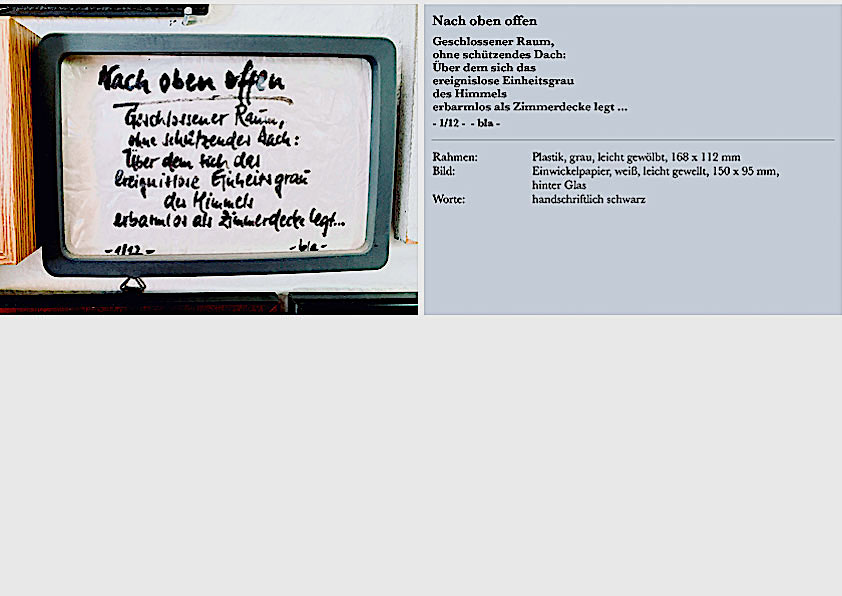 Nach oben offen
Geschlossener Raum,
ohne schützendes Dach:
Über dem sich das
ereignislose Einheitsgrau
des Himmels
erbarmlos als Zimmerdecke legt...
- 1/12 - - bla -
Nach oben offen
Geschlossener Raum,
ohne schützendes Dach:
Über dem sich das
ereignislose Einheitsgrau
des Himmels
erbarmlos als Zimmerdecke legt ...
- 1/12 - - bla -
Rahmen: Plastik, grau, leicht gewölbt, 168 x 112 mm
Bild: Einwickelpapier, weiß, leicht gewellt, 150 x 95 mm,
hinter Glas
Worte: handschriftlich schwarz